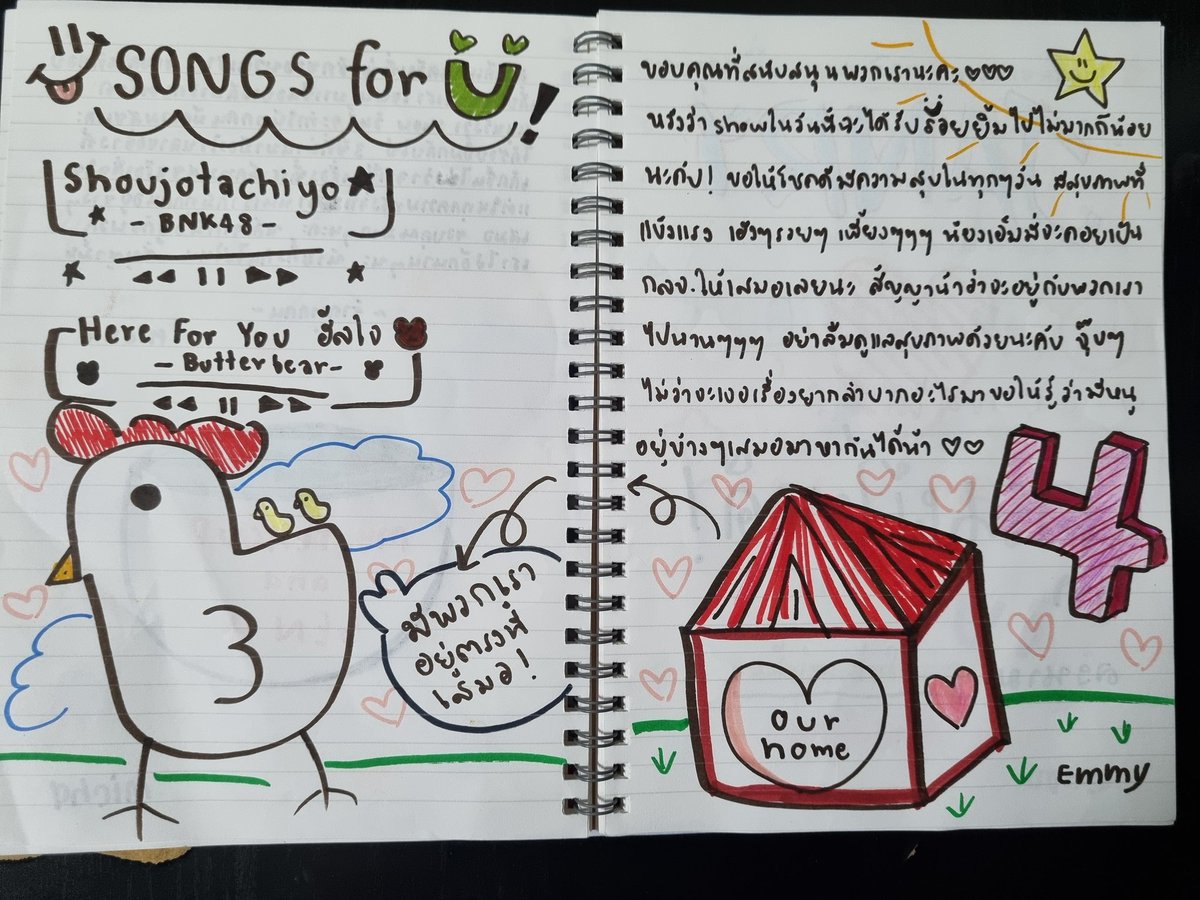 SONGS for U!
Shoujotachiyo
- BNK48 -
Here For You ฮีลใจ
- Butterbear -
มีพวกเรา
อยู่ตรงนี้
เสมอ!
ขอบคุณที่สนับสนุนพวกเรานะคะ ♡♡♡
หวังว่า showในวันนี้จะได้รับรอยยิ้มไปไม่มากก็น้อย
นะคับ! ขอให้โชคดีมีความสุขในทุกๆวัน สุขภาพที่
แข็งแรง เฮงๆรวยๆ เพี้ยงๆๆๆ น้องเอ็มมี่จะคอยเป็น
กลจ.ให้เสมอเลยนะ สัญญาน้าว่าจะอยู่กับพวกเรา
ไปนานๆๆๆ อย่าลืมดูแลสุขภาพด้วยนะคับ จุ๊บๆ
ไม่ว่าจะเจอเรื่องยากลำบากอะไรมาขอให้รู้ว่ามีหนู
อยู่ข้างๆเสมอมาหากันได้น้า ♡♡
4
our
home
Emmy